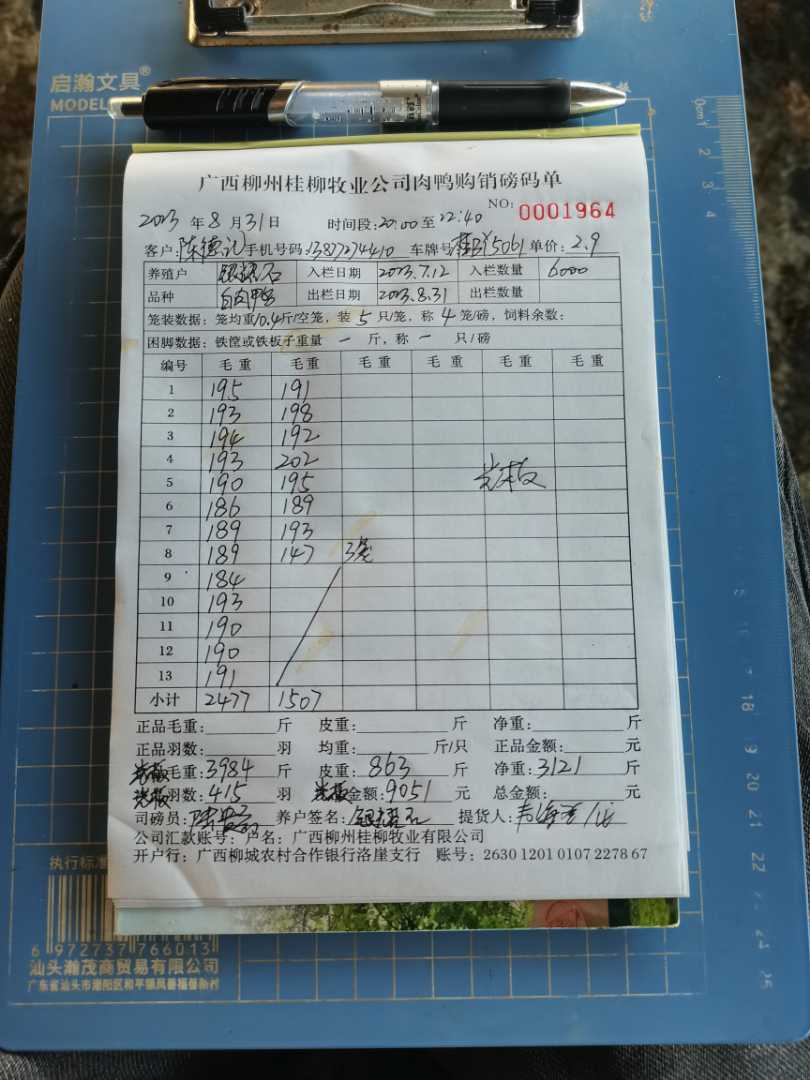 启瀚文具®
MODEL
0cm 1 2 3 4
广西柳州桂柳牧业公司肉鸭购销磅码单
NO: 0001964
2023 年 8 月 31 日 时间段: 20:00 至 22:40
客户: 陈德记 手机号码: 1387274410 车牌号 5061 单价: 2.9
养殖户 入栏日期 2023.7.12 入栏数量 6000
品种 白肉鸭 出栏日期 2023.8.31 出栏数量
笼装数据: 笼均重 10.4 斤/空笼, 装 5 只/笼, 称 4 笼/磅, 饲料余数:
困脚数据: 铁筐或铁板子重量 一 斤, 称 一 只/磅
编号 毛重 毛重 毛重 毛重 毛重 毛重
1 195 191
2 193 198
3 194 192
4 193 202
5 190 195 光板
6 186 189
7 189 193
8 189 147 3笼
9 184
10 193
11 190
12 190
13 191
小计 2477 1507
正品毛重: 斤 皮重: 斤 净重: 斤
正品羽数: 羽 均重: 斤/只 正品金额: 元
光板毛重: 3984 斤 皮重: 863 斤 净重: 3121 斤
光板羽数: 415 羽 光板金额: 9051 元 总金额: 元
司磅员: 养户签名: 提货人:
公司汇款账号: 户名: 广西柳州桂柳牧业有限公司
开户行: 广西柳城农村合作银行洛崖支行 账号: 2630 1201 0107 2278 67
执行标准
6 972737 766013
汕头瀚茂商贸有限公司
18 19 20 21 22 24 25